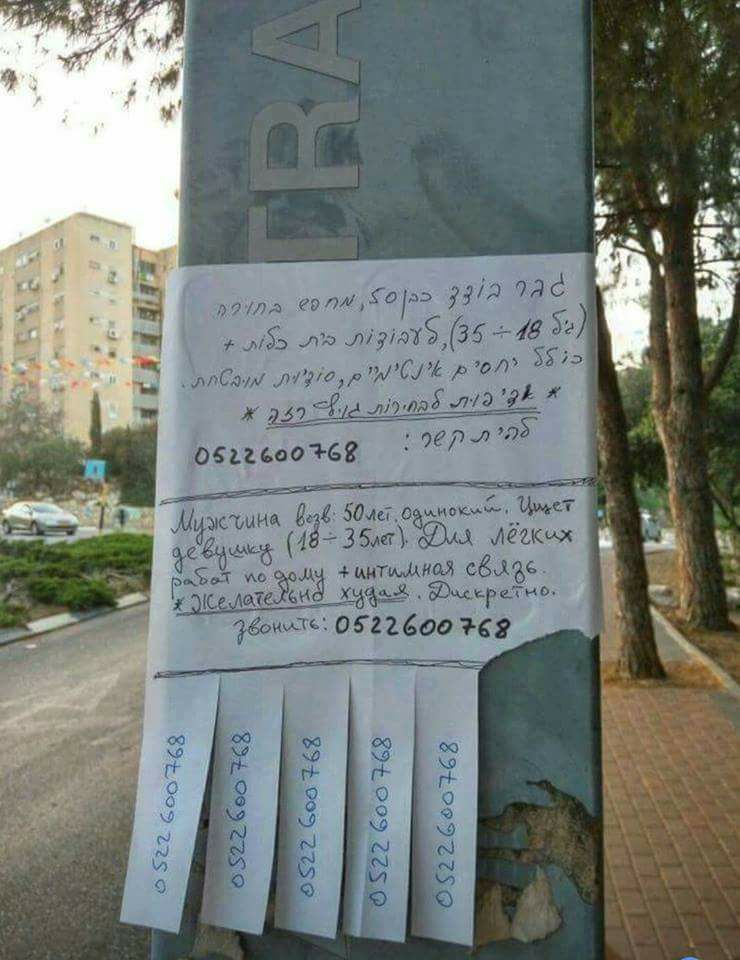 TRA
גבר בודד כבן 50, מחפש בחורה
(גיל 18 ÷ 35), לעבודות בית קלות +
כולל יחסים אינטימיים, סודיות מובטחת.
* עדיפות לבחורות רזה *
להית קשר:
0522600768
Мужчина возв: 50 лет, одинокий. Ищет
девушку (18 ÷ 35 лет). Для лёгких
работ по дому + интимная связь.
* Желательно худая. Дискретно.
звонить: 0522600768
0522600768
0522600768
0522600768
0522600768
0522600768